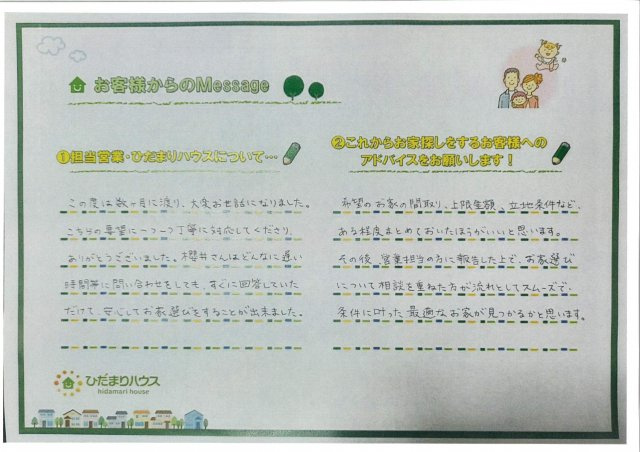 お客様からのMessage
①担当営業・ひだまりハウスについて…
この度は数ヶ月に渡り、大変お世話になりました。
こちらの要望に一つ一つ丁寧に対応してくださり、
ありがとうございました。櫻井さんはどんなに遅い
時間帯に問い合わせをしても、すぐに回答していた
だけて、安心してお家選びをすることが出来ました。
②これからお家探しをするお客様への
アドバイスをお願いします！
希望のお家の間取り、上限金額、立地条件など、
ある程度まとめておいたほうがいいと思います。
その後、営業担当の方に報告した上で、お家選び
について相談を重ねた方が流れとしてスムーズで、
条件に叶った最適なお家が見つかるかと思います。
ひだまりハウス
hidamari house